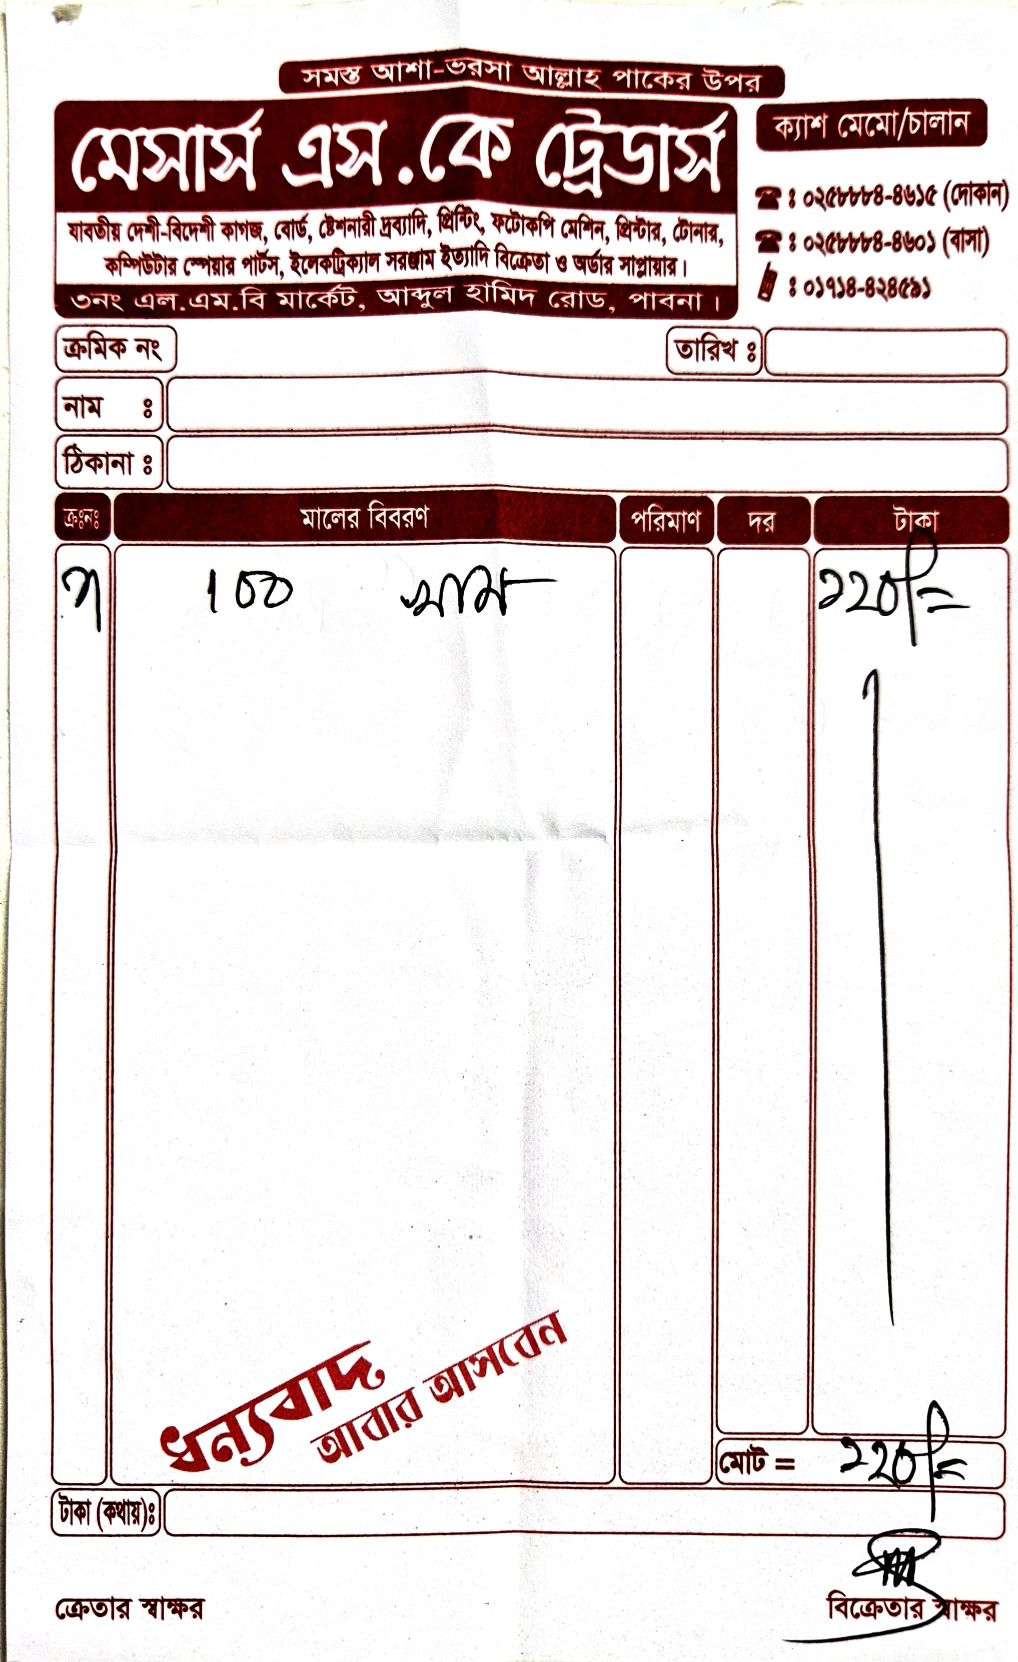 সমস্ত আশা-ভরসা আল্লাহ পাকের উপর
মেসার্স এস.কে ট্রেডার্স
ক্যাশ মেমো/চালান
যাবতীয় দেশী-বিদেশী কাগজ, বোর্ড, ষ্টেশনারী দ্রব্যাদি, প্রিন্টিং, ফটোকপি মেশিন, প্রিন্টার, টোনার,
কম্পিউটার স্পেয়ার পার্টস, ইলেকট্রিক্যাল সরঞ্জাম ইত্যাদি বিক্রেতা ও অর্ডার সাপ্লায়ার।
৩নং এল.এম.বি মার্কেট, আব্দুল হামিদ রোড, পাবনা।
ঃ ০২৫৮৮৮৪-৪৬১৫ (দোকান)
ঃ ০২৫৮৮৮৪-৪৬০১ (বাসা)
ঃ ০১৭১৪-৪২৪৫৯১
ক্রমিক নং
তারিখ ঃ
নাম ঃ
ঠিকানা ঃ
ক্রঃনঃ মালের বিবরণ পরিমাণ দর টাকা
100 খাম
220/=
ধন্যবাদ
আবার আসবেন
মোট = 220/=
টাকা (কথায়)ঃ
ক্রেতার স্বাক্ষর
বিক্রেতার স্বাক্ষর